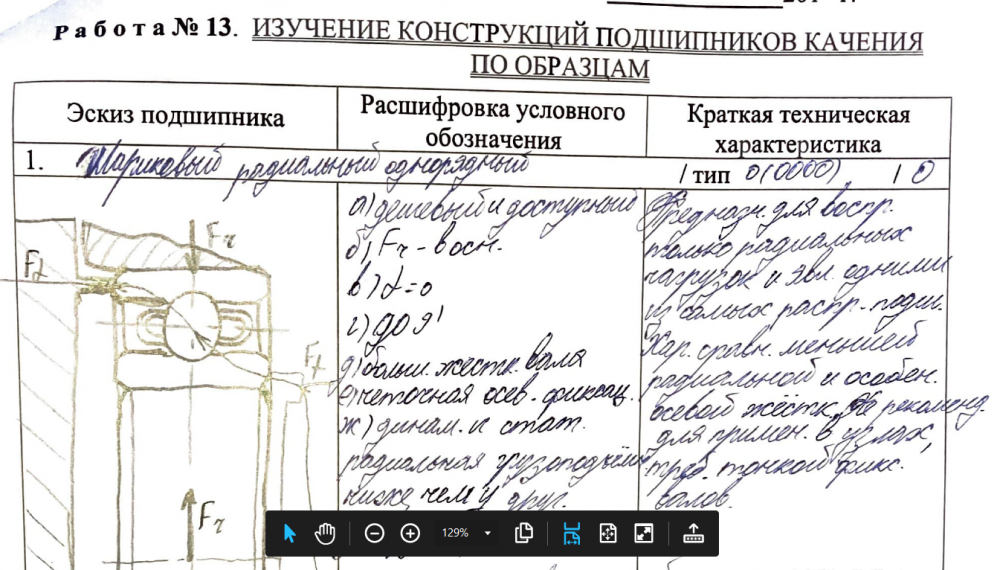 Работа № 13. ИЗУЧЕНИЕ КОНСТРУКЦИЙ ПОДШИПНИКОВ КАЧЕНИЯ
ПО ОБРАЗЦАМ
Эскиз подшипника
Расшифровка условного
обозначения
Краткая техническая
характеристика
1. Шариковый радиальный однорядный / тип 0(0000) / 0
а) дешевый и доступный
б) Fr - восн.
в) α=0
г) до 9'
д) больш. жестк. вала
е) неточная осев. фиксац.
ж) динам. и стат.
радиальная грузоподъём
ниже чем у друг.
Предназн. для воспр.
только радиальных
нагрузок и явл. одними
из самых распр. подш.
Хар. сравн. меньшей
радиальной и особен.
осевой жёстк. Не рекоменд.
для примен. в узлах,
треб. точной фикс.
валов.
Fr
Fr
129%